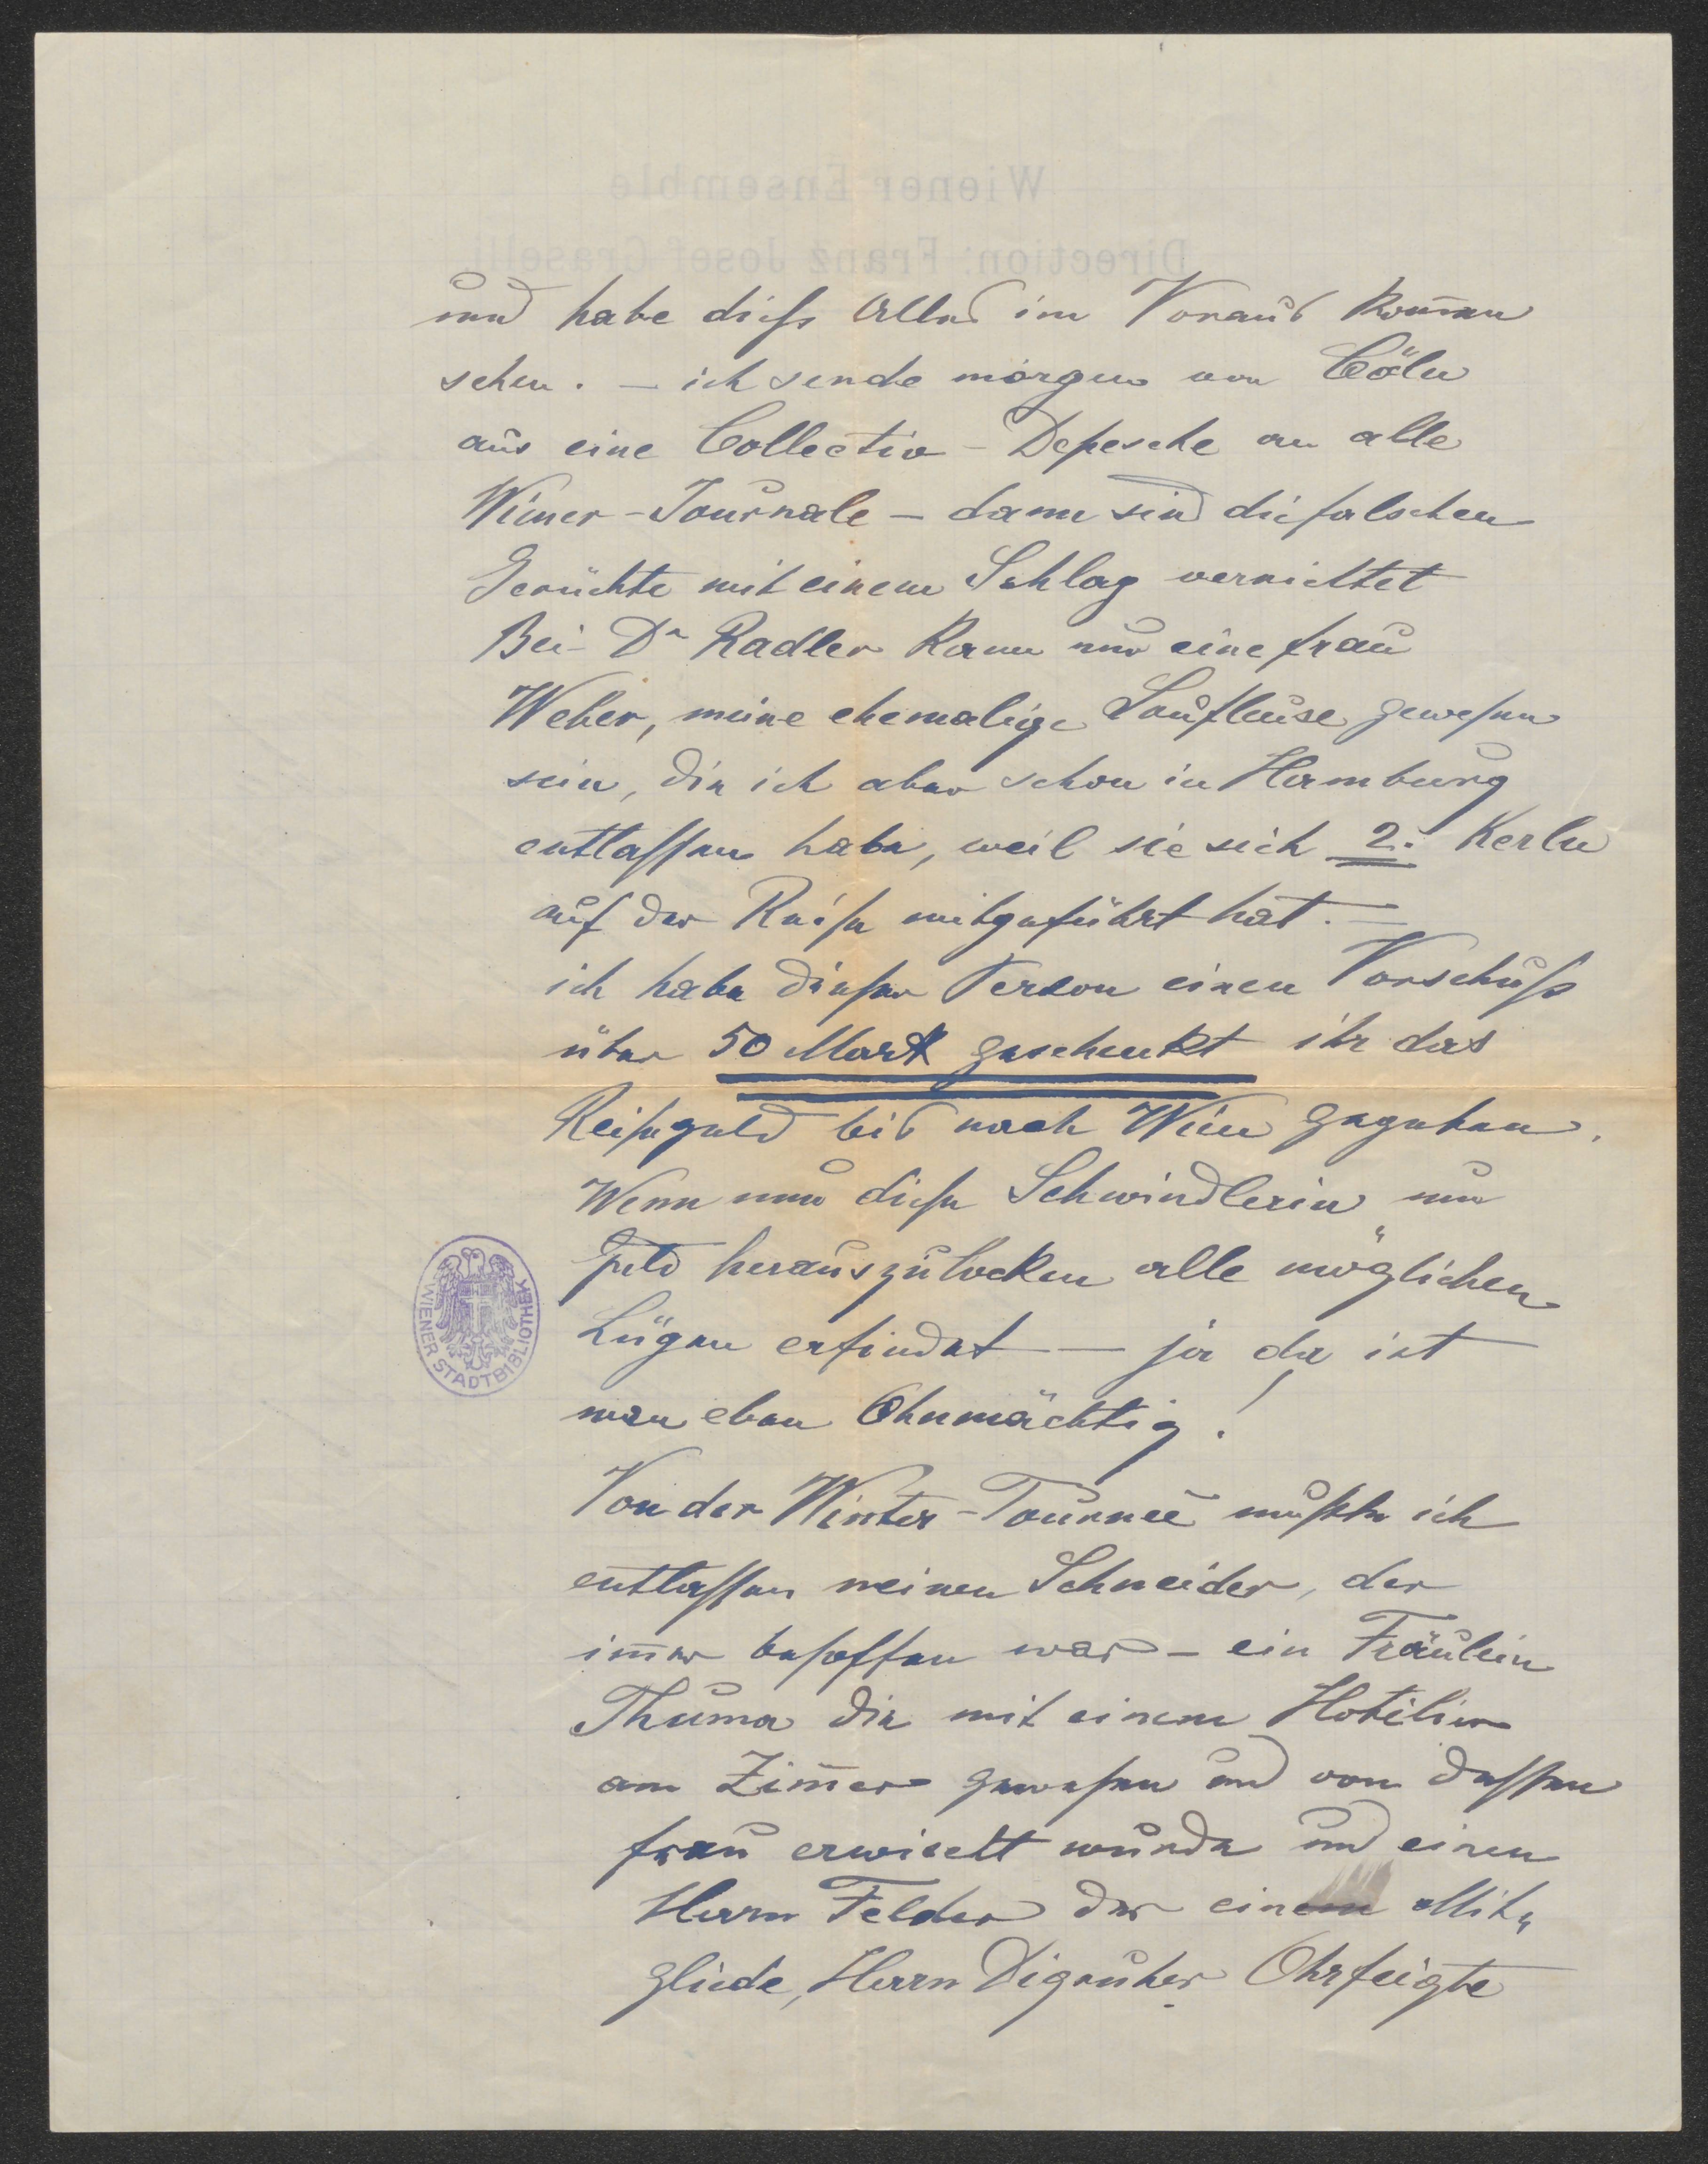 Wiener Ensemble
Direction: Franz Josef Graselli
und habe dieß Alles im Voraus kom̄en
sehen. – ich sende morgen von Cöln
aus eine Collectiv-Depesche an alle
Wiener-Journale – dann sind die falschen
Gerüchte mit einem Schlag vernichtet
Bei Dr Radler kann nur eine Frau
Weber, meine ehemalige Soufleuse gewesen
sein, die ich aber schon in Hamburg
entlassen habe, weil sie sich 2. Kerln
auf der Reise mitgeführt hat. –
ich habe dieser Person einen Vorschuß
über 50 Mark geschenkt ihr das
Reisegeld bis nach Wien gegeben.
Wenn nun diese Schwindlerin um
Geld herauszulocken alle möglichen
Lügen erfindet – ja da ist
man eben Ohnmächtig!
Von der Winter-Tournee mußte ich
entlassen meinen Schneider, der
im̄er besoffen war – ein Fräulein
Thuma die mit einem Hotelier
am Zim̄er gewesen und von dessen
Frau erwischt wurde und einen
Herrn Felder der einem Mit„
gliede, Herrn Digruber Ohrfeigte
WIENER STADTBIBLIOTHEK